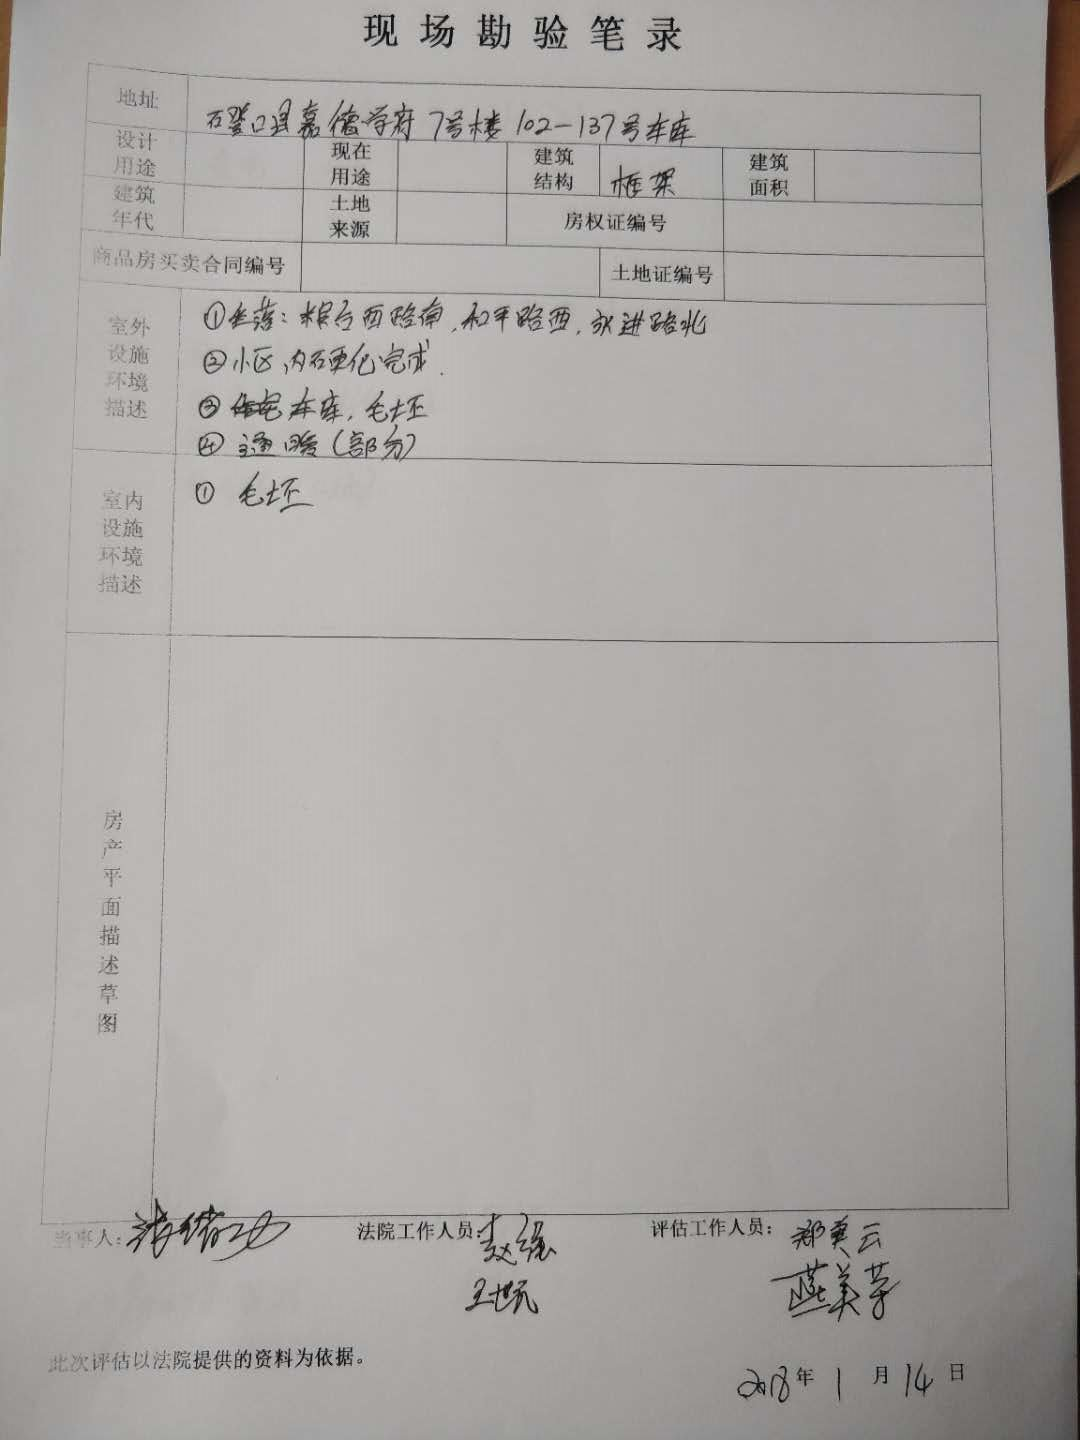 现场勘验笔录
地址 石登口县嘉德学府7号楼102-137号车库
设计用途 现在用途 建筑结构 框架 建筑面积
建筑年代 土地来源 房权证编号
商品房买卖合同编号 土地证编号
室外设施环境描述
①坐落：粮台西路南，和平路西，永进路北
②小区内石更化完成.
③ 车库，毛坯
④ 通暖（部分）
室内设施环境描述
① 毛坯
房产平面描述草图
当事人： 法院工作人员：赵强 评估工作人员：郑美云
王世元 燕美芳
此次评估以法院提供的资料为依据。
2018年1月14日